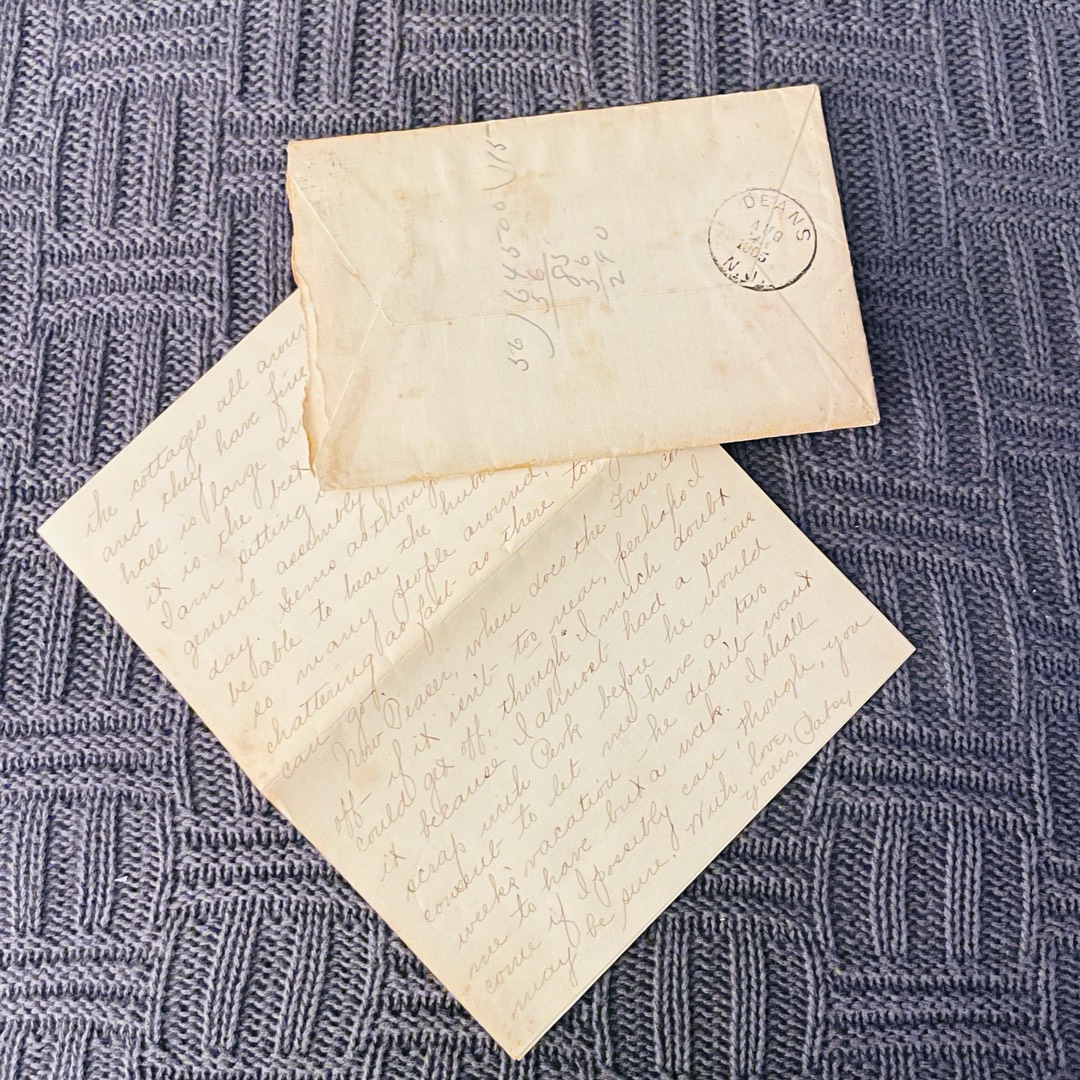 DEANS
AUG
1905
N.J.
56)6450.00(115
56
85
56
290
the cottages all aroun
and they have fine
hall is large an
it is the best
I am sitting
general assembly
day. Sems as though
be able to hear the hubb
so many people around,
chattering as fast as there to
can go.
Now Deaser, when does the Fair com
off - if it isn't too near, perhaps I
could get off, though I much doubt
it because I almost had a serious
scrap with Perk before he would
consent to let me have a two
weeks' vacation - he didn't want
me to have but a week. I shall
come if I possibly can, though, you
may be sure. With love,
Yours, Patsy.